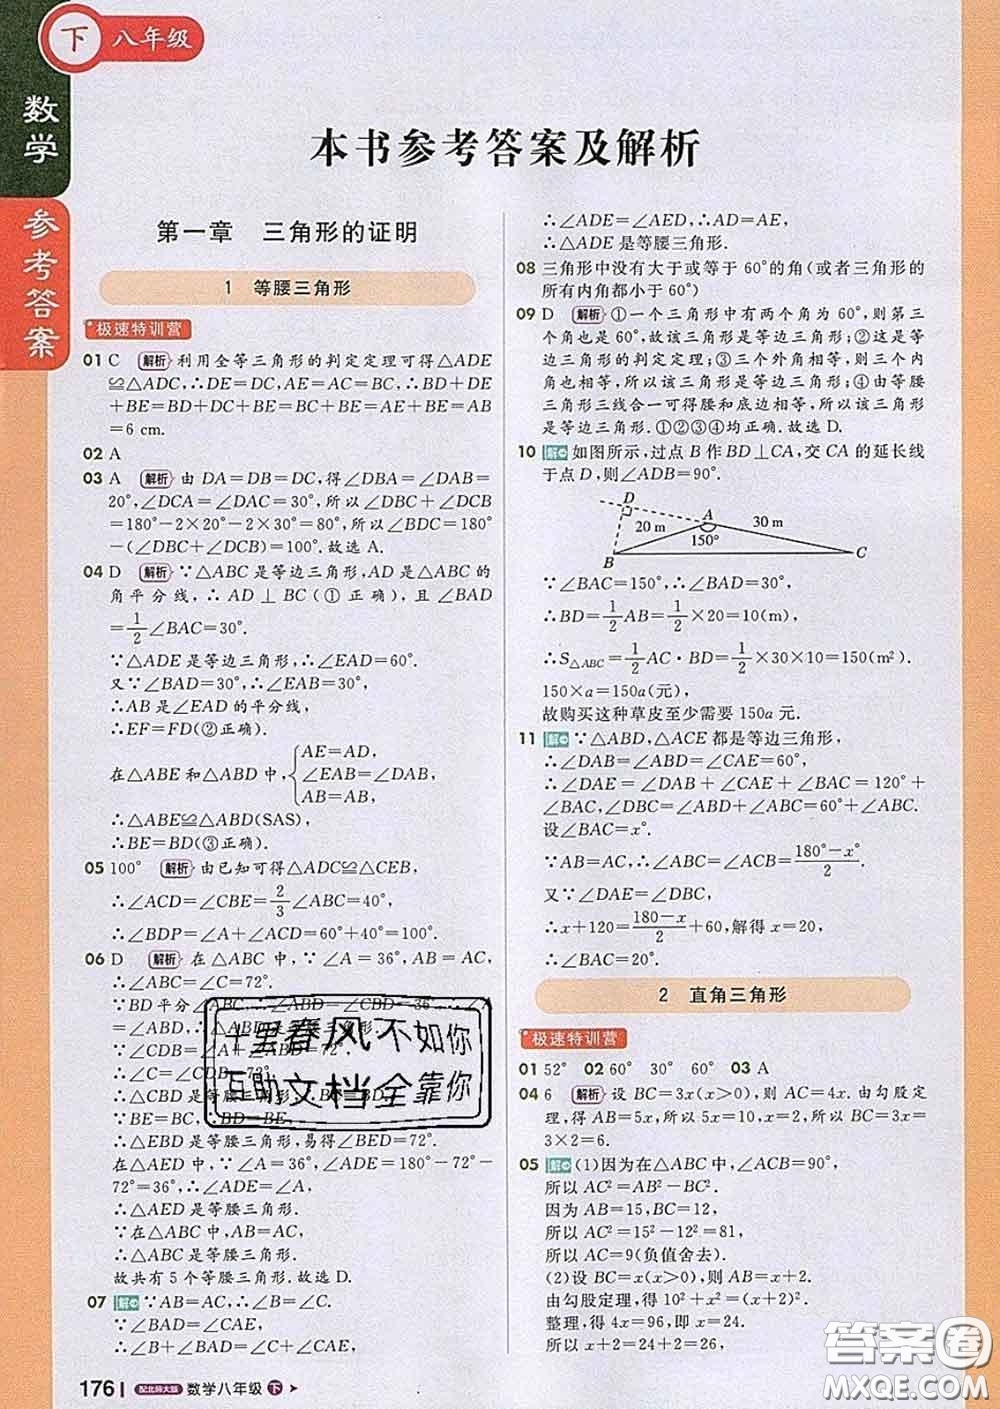 下 八年级
数学
参考答案
本书参考答案及解析
第一章 三角形的证明
1 等腰三角形
极速特训营
01 C 解析 利用全等三角形的判定定理可得△ADE
≌△ADC,∴DE=DC,AE=AC=BC,∴BD+DE
+BE=BD+DC+BE=BC+BE=AE+BE=AB
=6 cm.
02 A
03 A 解析 由 DA=DB=DC,得∠DBA=∠DAB=
20°,∠DCA=∠DAC=30°,所以∠DBC+∠DCB
=180°-2×20°-2×30°=80°,所以∠BDC=180°
-(∠DBC+∠DCB)=100°.故选 A.
04 D 解析 ∵△ABC是等边三角形,AD是△ABC的
角平分线,∴AD⊥BC(①正确),且∠BAD
=1/2∠BAC=30°.
∵△ADE是等边三角形,∴∠EAD=60°.
又∵∠BAD=30°,∴∠EAB=30°,
∴AB是∠EAD的平分线,
∴EF=FD(②正确).
在△ABE和△ABD中,{AE=AD,
∠EAB=∠DAB,
AB=AB,
∴△ABE≌△ABD(SAS),
∴BE=BD(③正确).
05 100° 解析 由已知可得△ADC≌△CEB,
∴∠ACD=∠CBE=2/3∠ABC=40°,
∴∠BDP=∠A+∠ACD=60°+40°=100°.
06 D 解析 在△ABC中,∵∠A=36°,AB=AC,
∴∠ABC=∠C=72°.
∵BD平分∠ABC,∴∠ABD=∠CBD=36°,
∵BE=BC,∴BE=BD,
∴△EBD是等腰三角形,易得∠BED=72°.
在△AED中,∵∠A=36°,∠ADE=180°-72°-
72°=36°,
∴△AED是等腰三角形.
∵在△ABC中,AB=AC,
∴△ABC是等腰三角形.
故共有5个等腰三角形.故选D.
07 解 ∵AB=AC,∴∠B=∠C.
∵∠BAD=∠CAE,
∴∠B+∠BAD=∠C+∠CAE,
∴∠ADE=∠AED,∴AD=AE,
∴△ADE是等腰三角形.
08 三角形中没有大于或等于60°的角(或者三角形的
所有内角都小于60°)
09 D 解析 ①一个三角形中有两个角为60°,则第三
个角也是60°,故该三角形是等边三角形;②这是等
边三角形的判定定理;③三个外角相等,则三个内
角也相等,所以该三角形是等边三角形;④由等腰
三角形三线合一可得腰和底边相等,所以该三角形
是等边三角形.①②③④均正确.故选D.
10 解 如图所示,过点B作BD⊥CA,交CA的延长线
于点D,则∠ADB=90°.
D
A
20 m
30 m
150°
B
C
∵∠BAC=150°,∴∠BAD=30°,
∴BD=1/2AB=1/2×20=10(m),
∴S△ABC=1/2AC·BD=1/2×30×10=150(m²).
150×a=150a(元),
故购买这种草皮至少需要150a元.
11 解 ∵△ABD,△ACE都是等边三角形,
∴∠DAB=∠ABD=∠CAE=60°,
∴∠DAE=∠DAB+∠CAE+∠BAC=120°+
∠BAC,∠DBC=∠ABD+∠ABC=60°+∠ABC.
设∠BAC=x°.
∵AB=AC,∴∠ABC=∠ACB=(180°-x°)/2.
又∵∠DAE=∠DBC,
∴x+120=(180-x)/2+60,解得x=20,
∴∠BAC=20°.
2 直角三角形
极速特训营
01 52° 02 60° 30° 60° 03 A
04 6 解析 设BC=3x(x>0),则AC=4x.由勾股定
理,得AB=5x,所以5x=10,所以x=2,所以BC=3x=
3×2=6.
05 解 (1)因为在△ABC中,∠ACB=90°,
所以AC²=AB²-BC².
因为AB=15,BC=12,
所以AC²=15²-12²=81,
所以AC=9(负值舍去).
(2)设BC=x(x>0),则AB=x+2.
由勾股定理,得10²+x²=(x+2)².
整理,得4x=96,即x=24,
所以x+2=24+2=26,
十里春风不如你
互助文档全靠你
答案圈
MXQE.COM
176 配北师大版 数学八年级 下